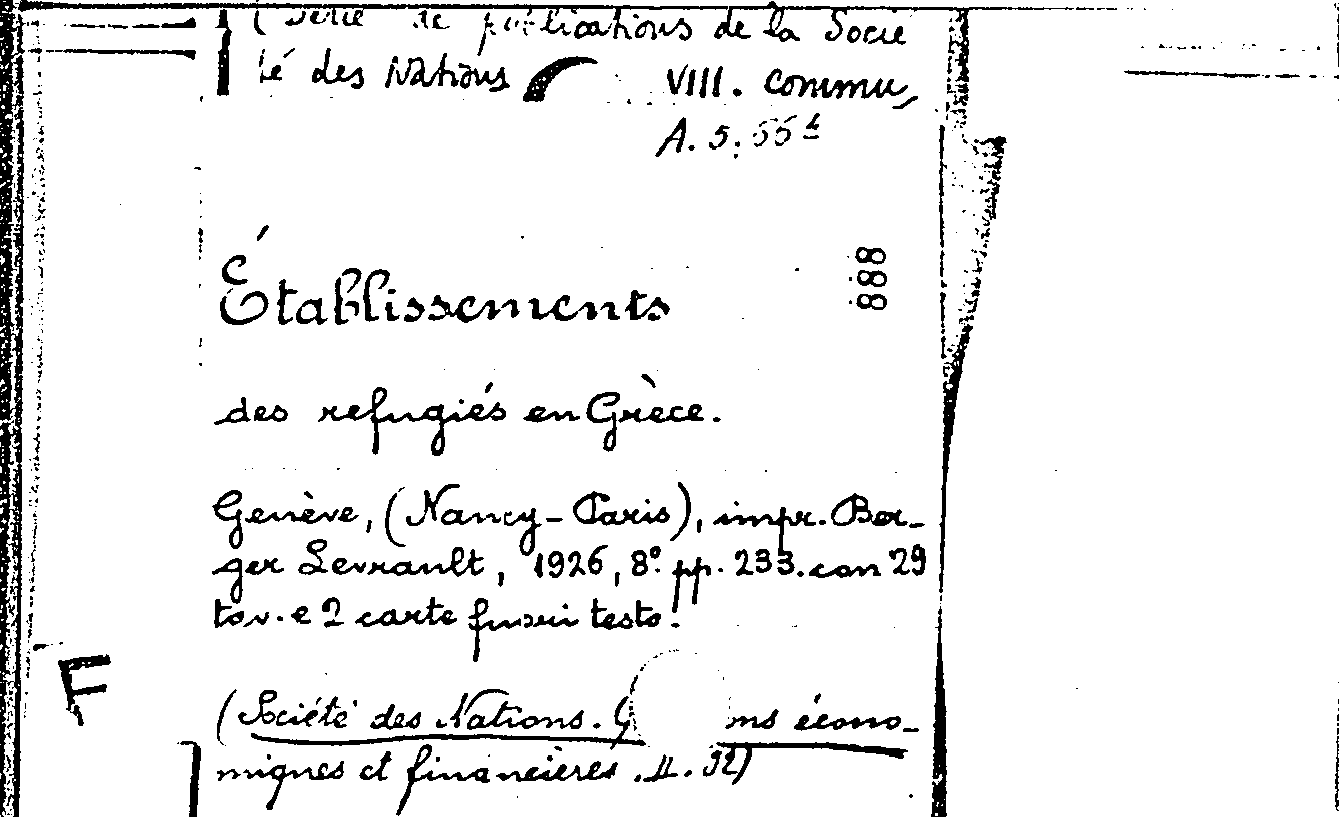 (Série de publications de la Socié
té des Nations VIII. Commu,
A. 5. 55
888
Établissements
des refugiés en Grèce.
Genève, (Nancy-Paris), impr. Ber-
ger Levrault, 1926, 8° pp. 233. con 29
tav. e 2 carte fuori testo.
(Société des Nations. ns écono-
miques et financières. II. 32)
F